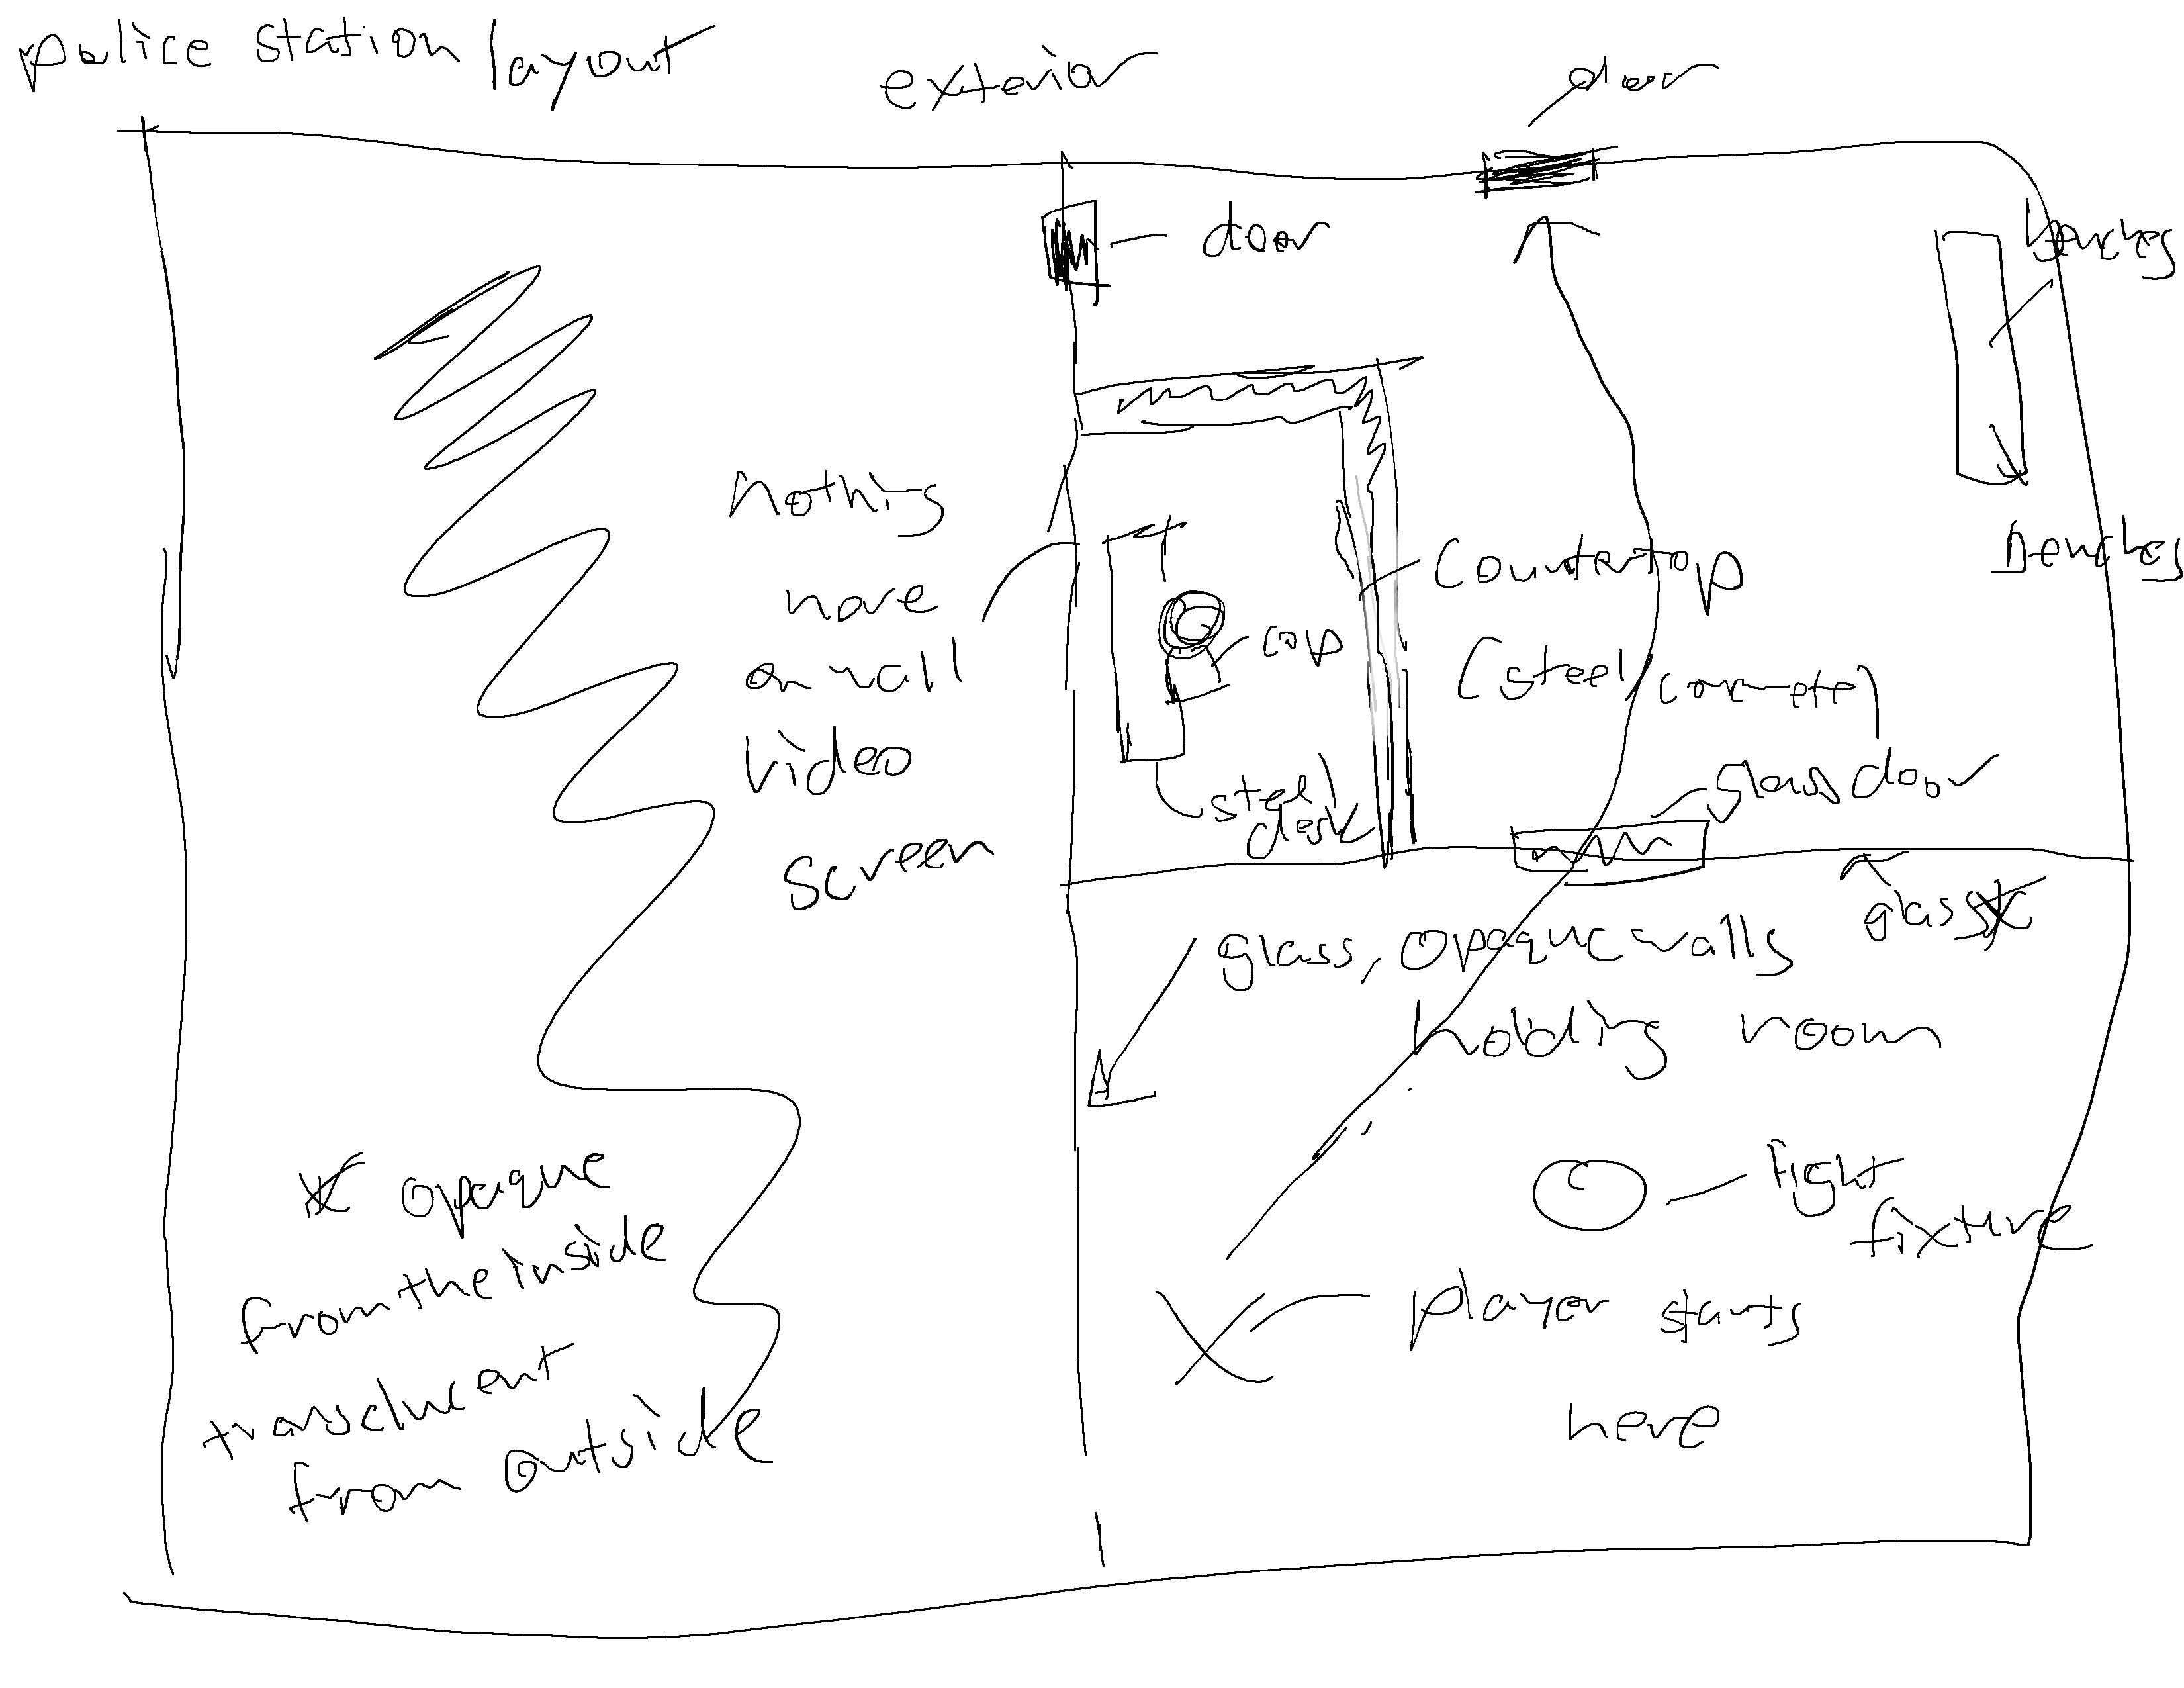 police station layout
exterior
door
door
benches
benches
nothing
here
on wall
video
screen
cop
countertop
(steel/concrete)
steel
desk
glass door
glass*
glass, opaque walls
holding room
light
fixture
player starts
here
* opaque
from the inside
transclucent
from outside